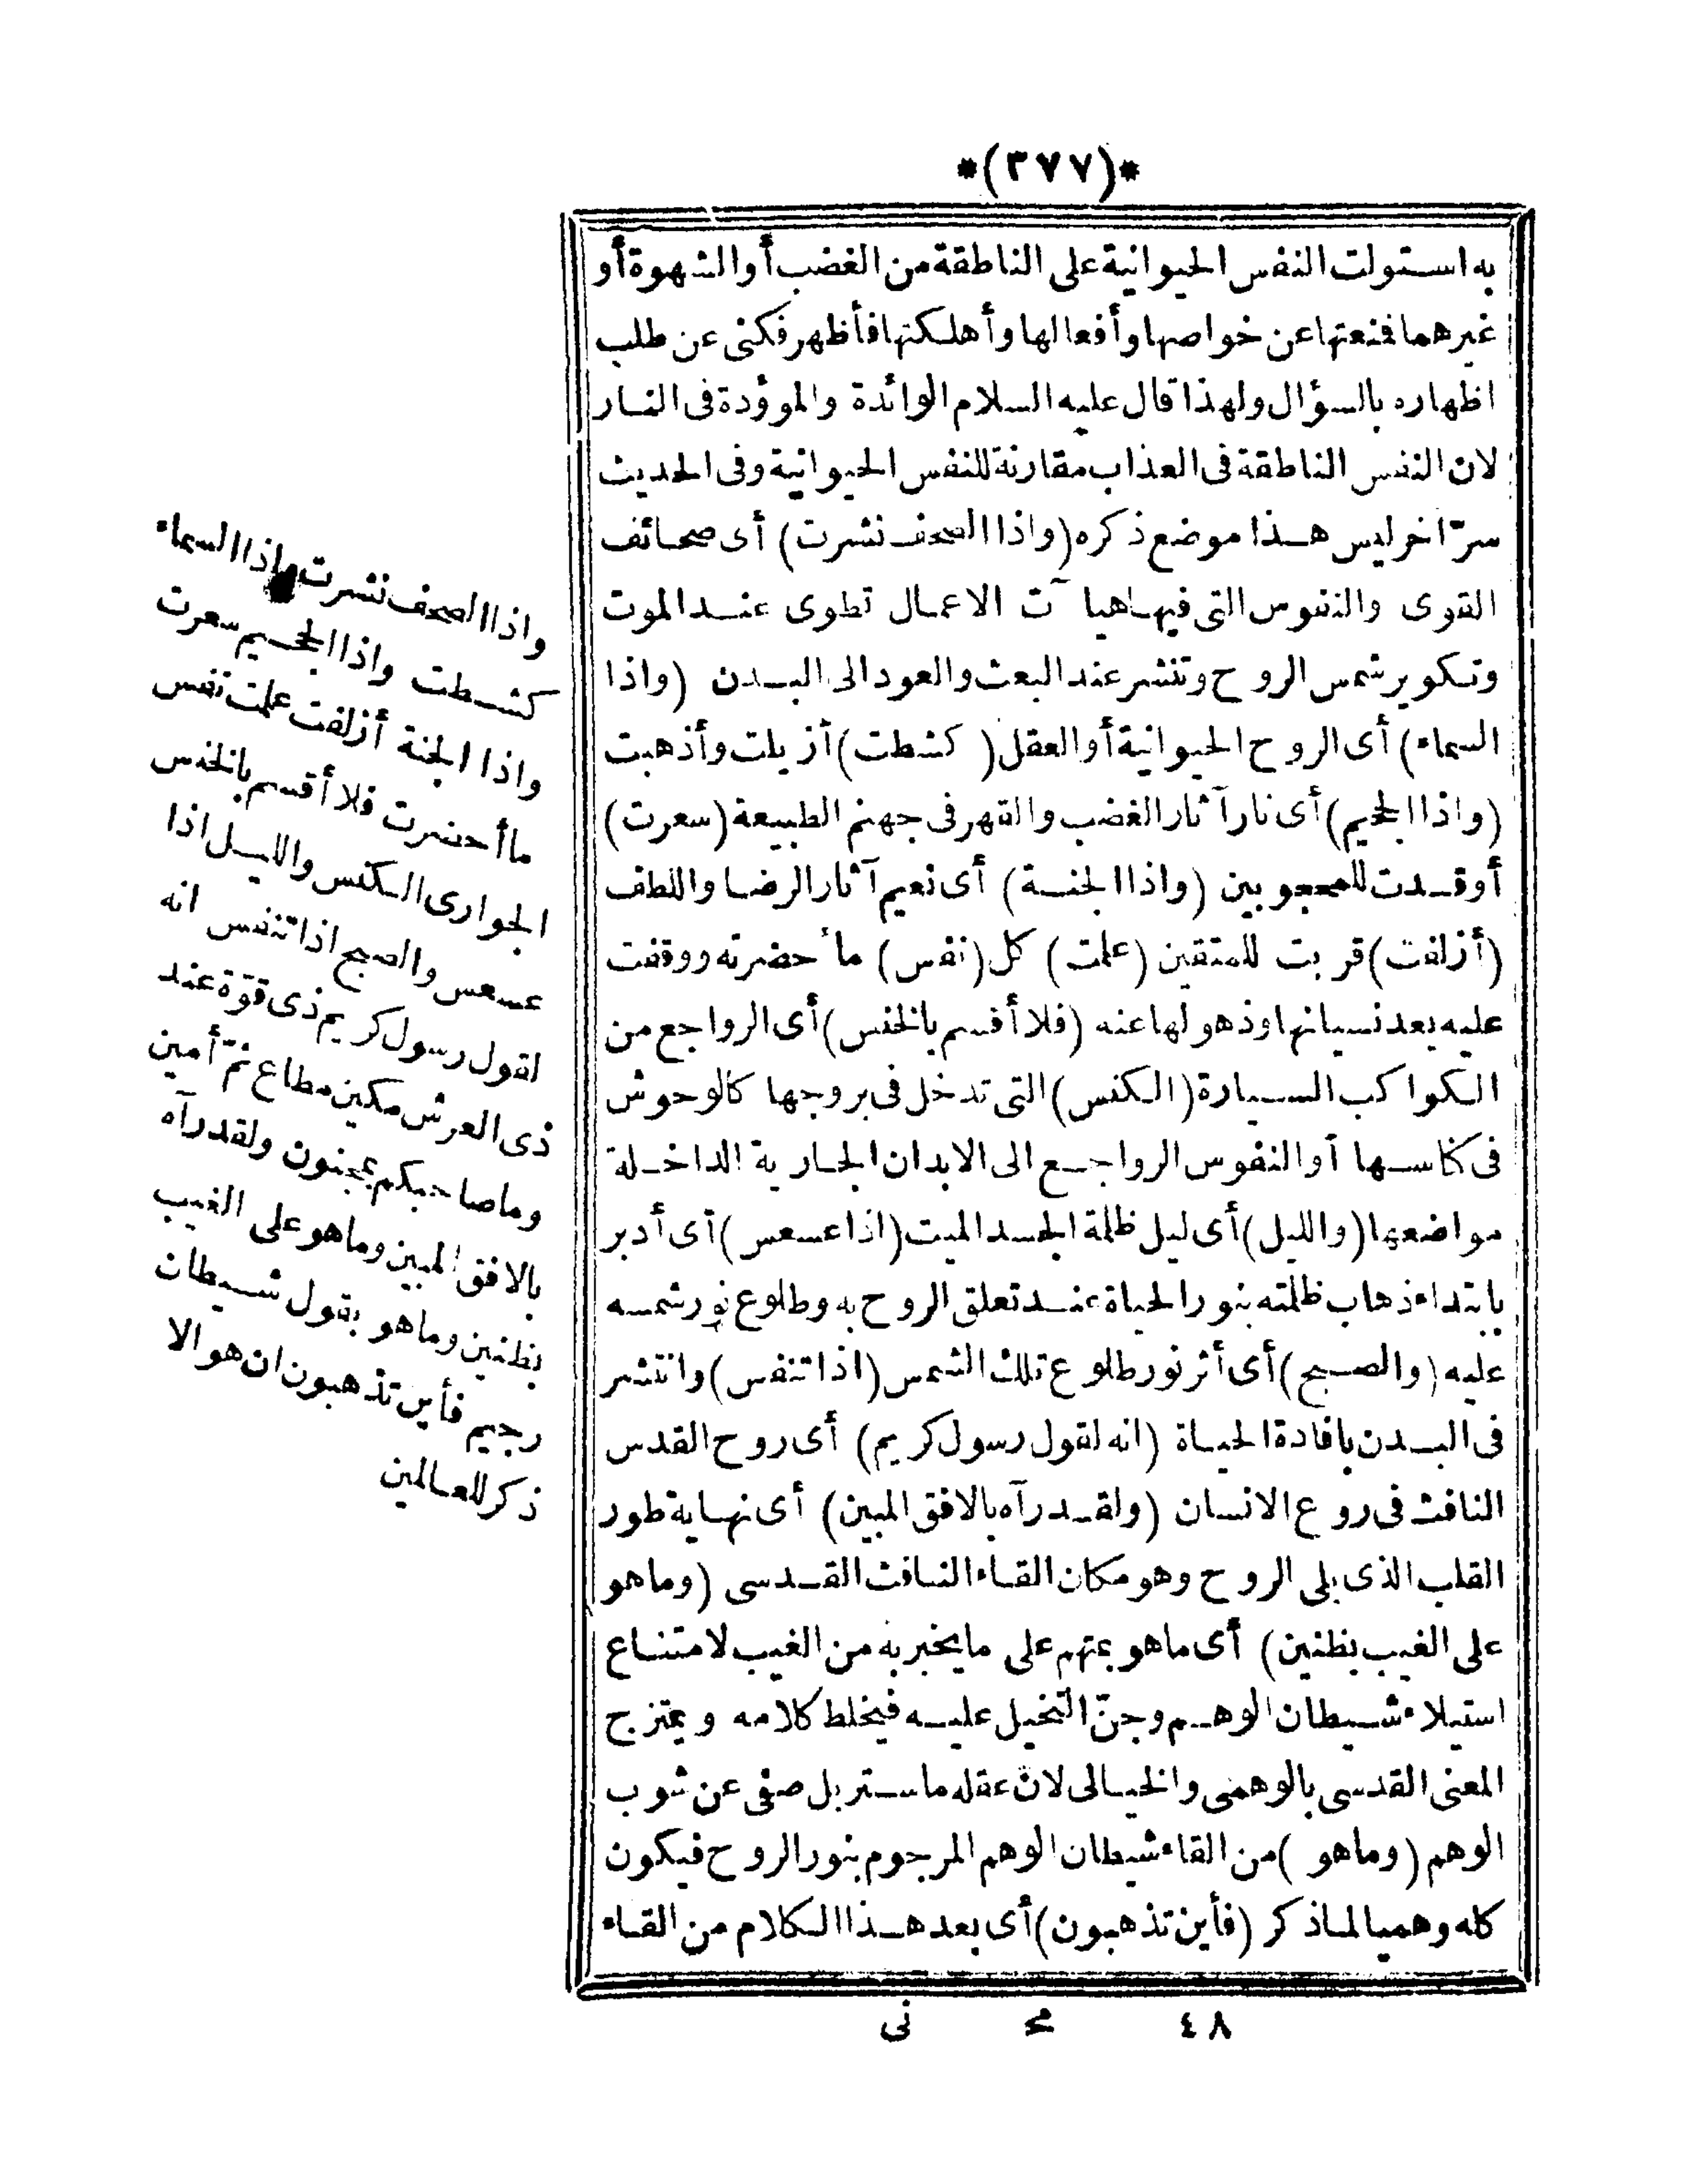 *(٣٧٧)*
به استولت النفس الحيوانية على الناطقة من الغضب أو الشهوة أو
غيرهما فمنعتها عن خواصها وأفعالها وأهلكتها فأظهر فكنى عن طلب
اظهاره بالسؤال ولهذا قال عليه السلام الوائدة والموؤدة فى النار
لان النفس الناطقة فى العذاب مقارنة للنفس الحيوانية وفى الحديث
سرّ اخر ليس هذا موضع ذكره (واذا الصحف نشرت) أى صحائف
القوى والنفوس التى فيها هيا ٓت الاعمال تطوى عند الموت
وتكوير شمس الروح وتنشر عند البعث والعود الى البدن (واذا
السماء) أى الروح الحيوانية أو العقل (كشطت) أزيلت وأذهبت
(واذا الجحيم) أى نار آثار الغضب والقهر فى جهنم الطبيعة (سعرت)
أوقدت للمحجوبين (واذا الجنة) أى نعيم آثار الرضا واللطف
(أزلفت) قربت للمتقين (علمت) كل (نفس) ما أحضرته ووقفت
عليه بعد نسيانها وذهولها عنه (فلا أقسم بالخنس) أى الرواجع من
الكواكب السيارة (الكنس) التى تدخل فى بروجها كالوحوش
فى كناسها أو النفوس الرواجع الى الابدان الجارية الداخلة
مواضعها (والليل) أى ليل ظلمة الجسد الميت (اذا عسعس) أى أدبر
بابتداء ذهاب ظلمته بنور الحياة عند تعلق الروح به وطلوع نور شمسه
عليه (والصبح) أى أثر نور طلوع تلك الشمس (اذا تنفس) وانتشر
فى البدن بافادة الحياة (انه لقول رسول كريم) أى روح القدس
النافث فى روع الانسان (ولقد رآه بالافق المبين) أى نهاية طور
القلب الذى يلى الروح وهو مكان القاء النافث القدسى (وما هو
على الغيب بظنين) أى ما هو بمتهم على ما يخبر به من الغيب لامتناع
استيلاء شيطان الوهم وجنّ التخيل عليه فيخلط كلامه ويمتزج
المعنى القدسى بالوهمى والخيالى لانّ عقله ما ستر بل صفى عن شوب
الوهم (وما هو) من القاء شيطان الوهم المرجوم بنور الروح فيكون
كله وهميا لما ذكر (فأين تذهبون) أى بعد هذا الكلام من القاء
واذا الصحف نشرت واذا السماء
كشطت واذا الجحيم سعرت
واذا الجنة أزلفت علمت نفس
ما أحضرت فلا أقسم بالخنس
الجوارى الكنس والليل اذا
عسعس والصبح اذا تنفس انه
لقول رسول كريم ذى قوّة عند
ذى العرش مكين مطاع ثمّ أمين
وما صاحبكم بمجنون ولقد رآه
بالافق المبين وما هو على الغيب
بظنين وما هو بقول شيطان
رجيم فأين تذهبون ان هو الا
ذكر للعالمين
٤٨ مح نى